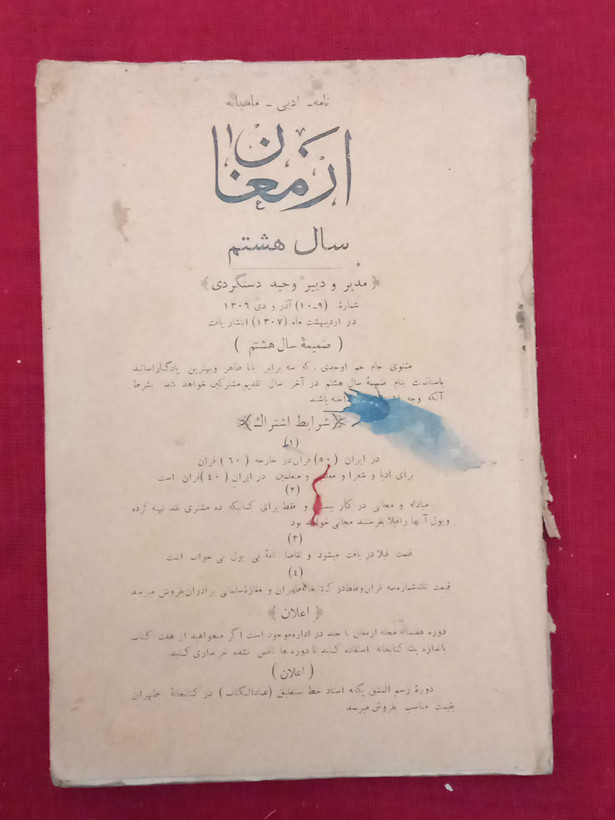 نامه - ادبی - ماهیانه
ارمغان
سال هشتم
﴿ مدیر و دبیر وحید دستگردی ﴾
شمارهٔ (۹-۱۰) آذر و دی ۱۳۰۶
در اردیبهشت ماه (۱۳۰۷) انتشار یافت
( ضمیمهٔ سال هشتم )
مثنوی جام جم اوحدی که سه برابر بابا طاهر و بهترین یادگار اساتید
باستانست بنام ضمیمهٔ سال هشتم در آخر سال تقدیم مشترکین خواهد شد بشرط
آنکه وجه باشند
شرایط اشتراك
(۱)
در ایران (۵۰) قران در خارجه (۶۰) قران
برای ادبا و شعرا و و متعلمین در ایران (۴۰) قران است
(۲)
مبادله و مجانی در کار و فقط برای کسانیکه ده مشتری نقد تهیه کرده
و پول آنها را قبلا بفرستند مجانی خواهد بود
(۳)
قیمت قبلا دریافت میشود و تقاضا نامهٔ بی پول بی جواب است
(۴)
قیمت تکشماره سه قران و فقط در کتابخانه طهران و مغازهٔ سلمانی برادران بفروش میرسد
﴿ اعلان ﴾
دوره هفتساله مجله ارمغان با جلد در اداره موجود است اگر میخواهید از هفت کتاب
باندازه یك کتابخانه استفاده کنید تا دوره ها ناقص نشده خریداری کنید
( اعلان )
دورهٔ رسم المشق یگانه استاد خط نستعلیق (عمادالکتاب) در کتابخانهٔ طهران
بقیمت مناسب بفروش میرسد